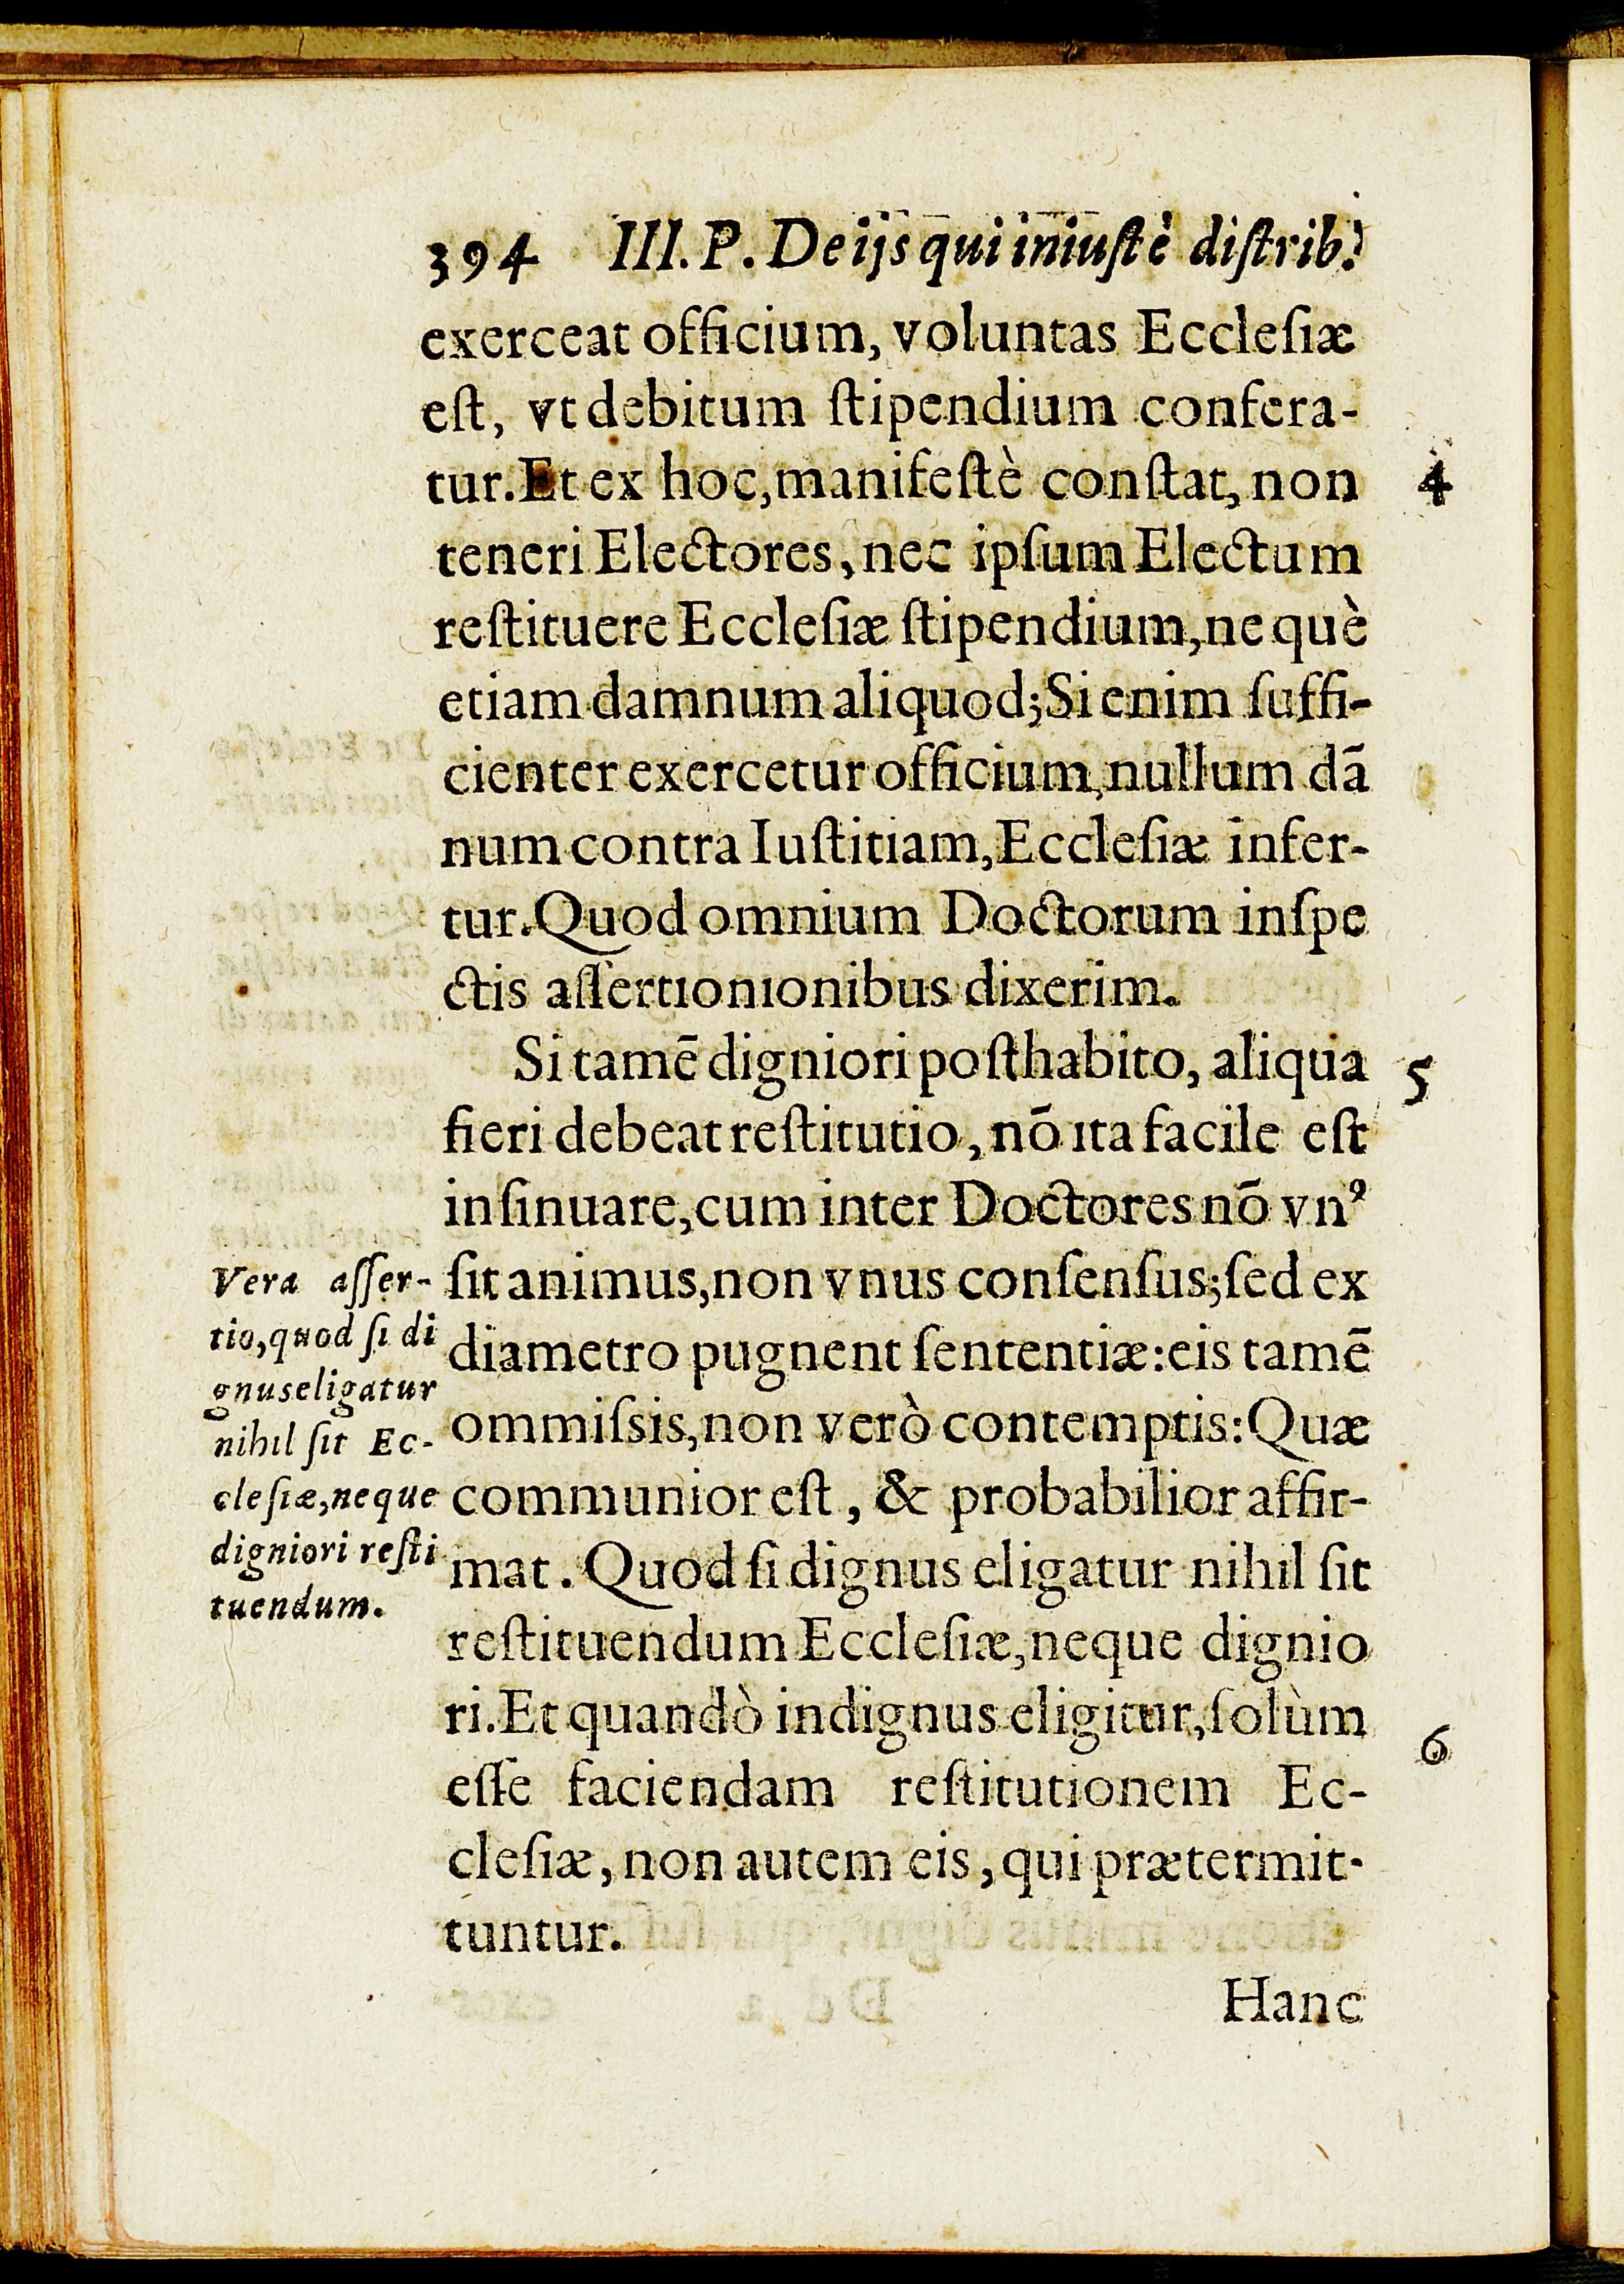 394 III. P. De ijs qui iniuſtè diſtrib.
exerceat officium, voluntas Eccleſiæ
eſt, vt debitum ſtipendium confera-
tur. Et ex hoc, manifeſtè conſtat, non
4
teneri Electores, nec ipſum Electum
reſtituere Eccleſiæ ſtipendium, ne què
etiam damnum aliquod; Si enim ſuffi-
cienter exercetur officium, nullum dā
num contra Iuſtitiam, Eccleſiæ infer-
tur. Quod omnium Doctorum inſpe
ctis aſſertionionibus dixerim.
Si tamē digniori poſthabito, aliqua
5
fieri debeat reſtitutio, nō ita facile eſt
inſinuare, cum inter Doctores nō vnꝰ
ſit animus, non vnus conſenſus; ſed ex
diametro pugnent ſententiæ: eis tamē
ommiſsis, non verò contemptis: Quæ
communior eſt, & probabilior affir-
mat. Quod ſi dignus eligatur nihil ſit
reſtituendum Eccleſiæ, neque dignio
ri. Et quandò indignus eligitur, ſolùm
6
eſſe faciendam reſtitutionem Ec-
cleſiæ, non autem eis, qui prætermit-
tuntur.
Vera aſſer-
tio, quod ſi di
gnus eligatur
nihil ſit Ec-
cleſiæ, neque
digniori reſti
tuendum.
Hanc